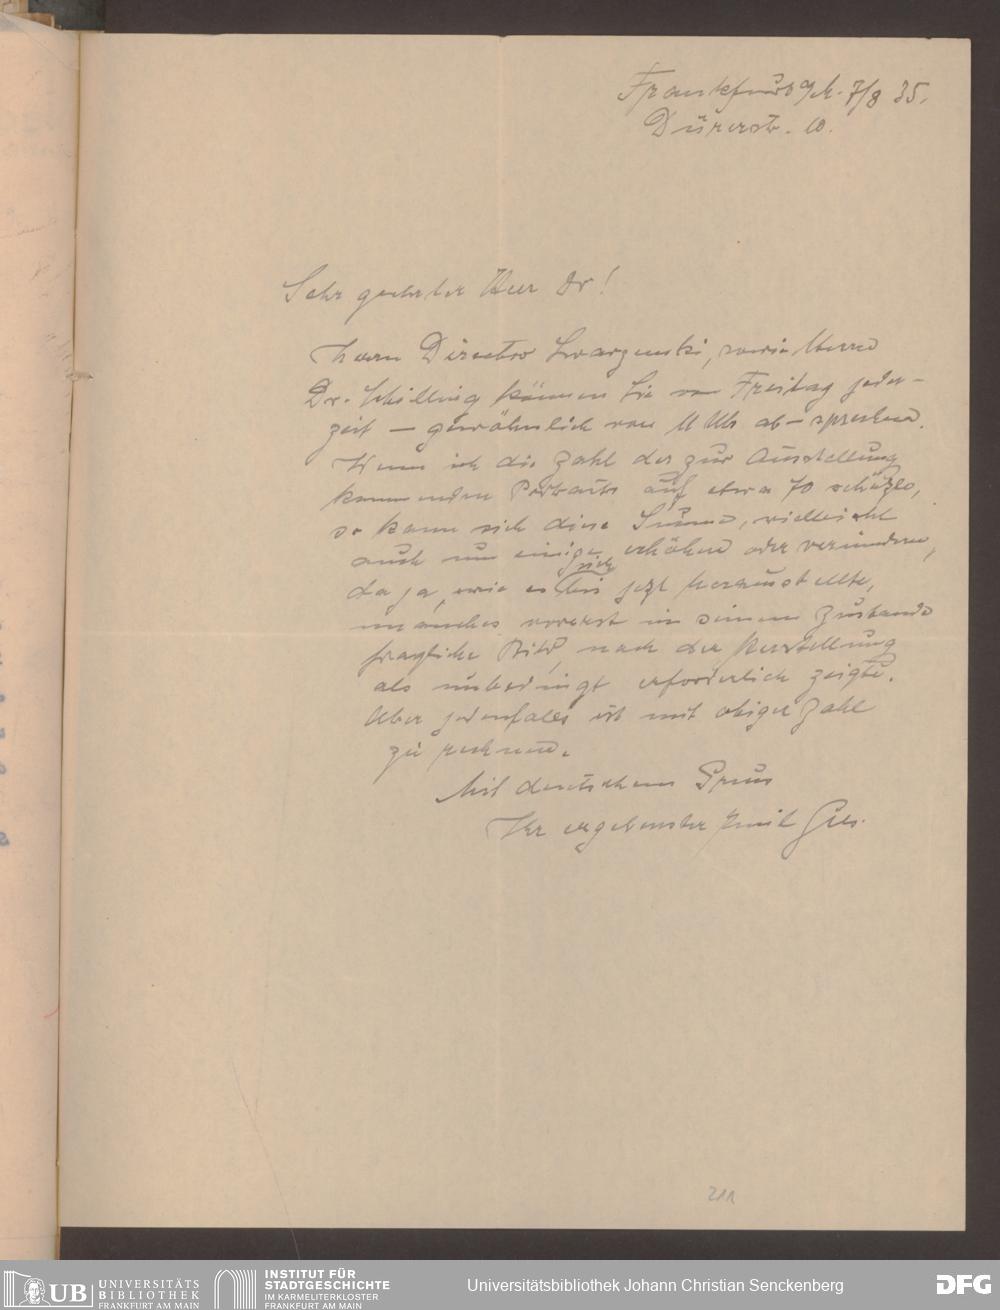 Frankfurt a/M. 7/8 35.
Dürerstr. 10.
Sehr geehrter Herr Dr!
Herrn Director Swarzenski, sowie Herrn
Dr. Schilling können Sie von Freitag jeder-
zeit — gewöhnlich von 11 Uhr ab — sprechen.
Wenn ich die Zahl der zur Ausstellung
kommenden Portraits auf etwa 70 schätze,
so kann sich diese Summe, vielleicht
auch um einige erhöhen oder vermindern,
da ja, wie es sich bis jezt herausstellte,
manches vorerst in seinem Zustande
fragliche Bild, nach der Herstellung
als unbedingt erforderlich zeigte.
Aber jedenfalls ist mit obiger Zahl
zu rechnen.
Mit deutschem Gruss
Ihr ergebenster Emil
211
UB UNIVERSITÄTS
BIBLIOTHEK
FRANKFURT AM MAIN
INSTITUT FÜR
STADTGESCHICHTE
IM KARMELITERKLOSTER
FRANKFURT AM MAIN
Universitätsbibliothek Johann Christian Senckenberg
DFG